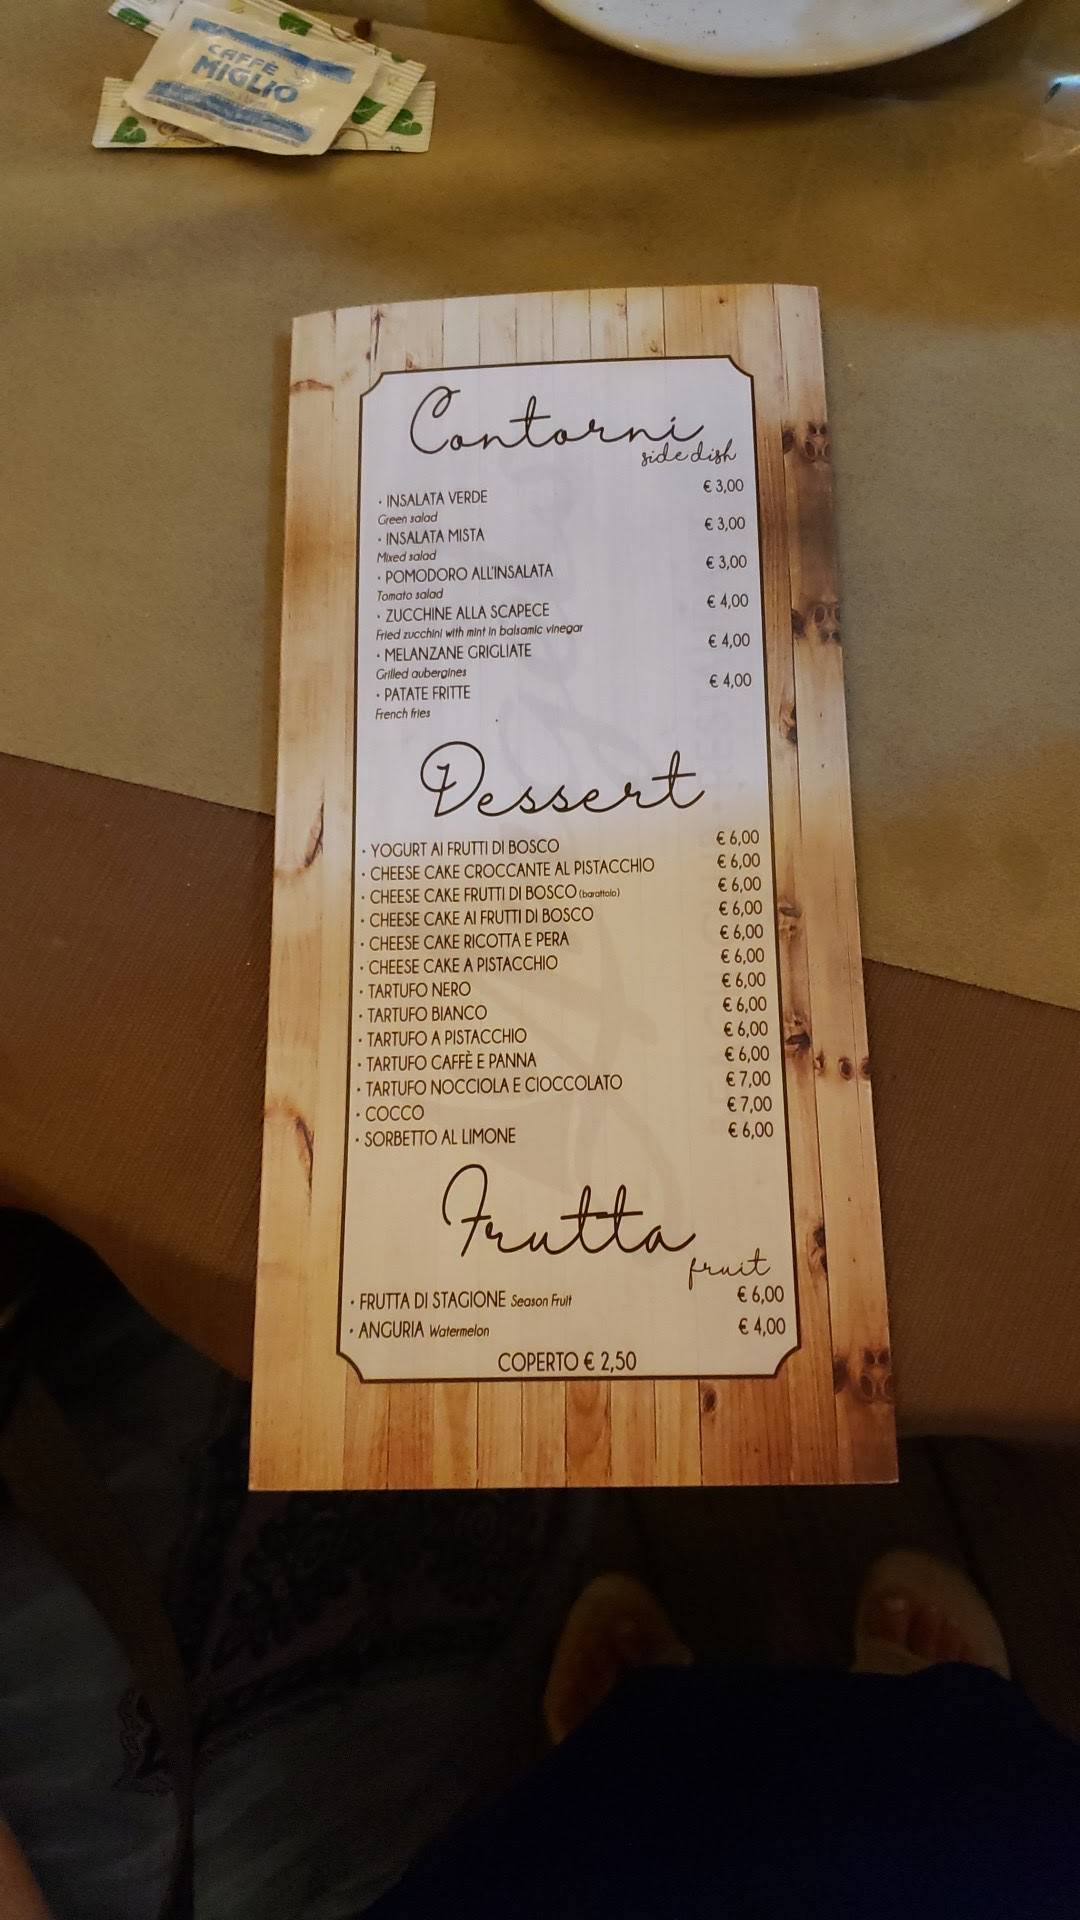 CAFFÈ
MIGLIO
Contorni
side dish
• INSALATA VERDE € 3,00
Green salad
• INSALATA MISTA € 3,00
Mixed salad
• POMODORO ALL'INSALATA € 3,00
Tomato salad
• ZUCCHINE ALLA SCAPECE € 4,00
Fried zucchini with mint in balsamic vinegar
• MELANZANE GRIGLIATE € 4,00
Grilled aubergines
• PATATE FRITTE € 4,00
French fries
Dessert
• YOGURT AI FRUTTI DI BOSCO € 6,00
• CHEESE CAKE CROCCANTE AL PISTACCHIO € 6,00
• CHEESE CAKE FRUTTI DI BOSCO (barattolo) € 6,00
• CHEESE CAKE AI FRUTTI DI BOSCO € 6,00
• CHEESE CAKE RICOTTA E PERA € 6,00
• CHEESE CAKE A PISTACCHIO € 6,00
• TARTUFO NERO € 6,00
• TARTUFO BIANCO € 6,00
• TARTUFO A PISTACCHIO € 6,00
• TARTUFO CAFFÈ E PANNA € 6,00
• TARTUFO NOCCIOLA E CIOCCOLATO € 7,00
• COCCO € 7,00
• SORBETTO AL LIMONE € 6,00
Frutta
fruit
• FRUTTA DI STAGIONE Season Fruit € 6,00
• ANGURIA Watermelon € 4,00
COPERTO € 2,50